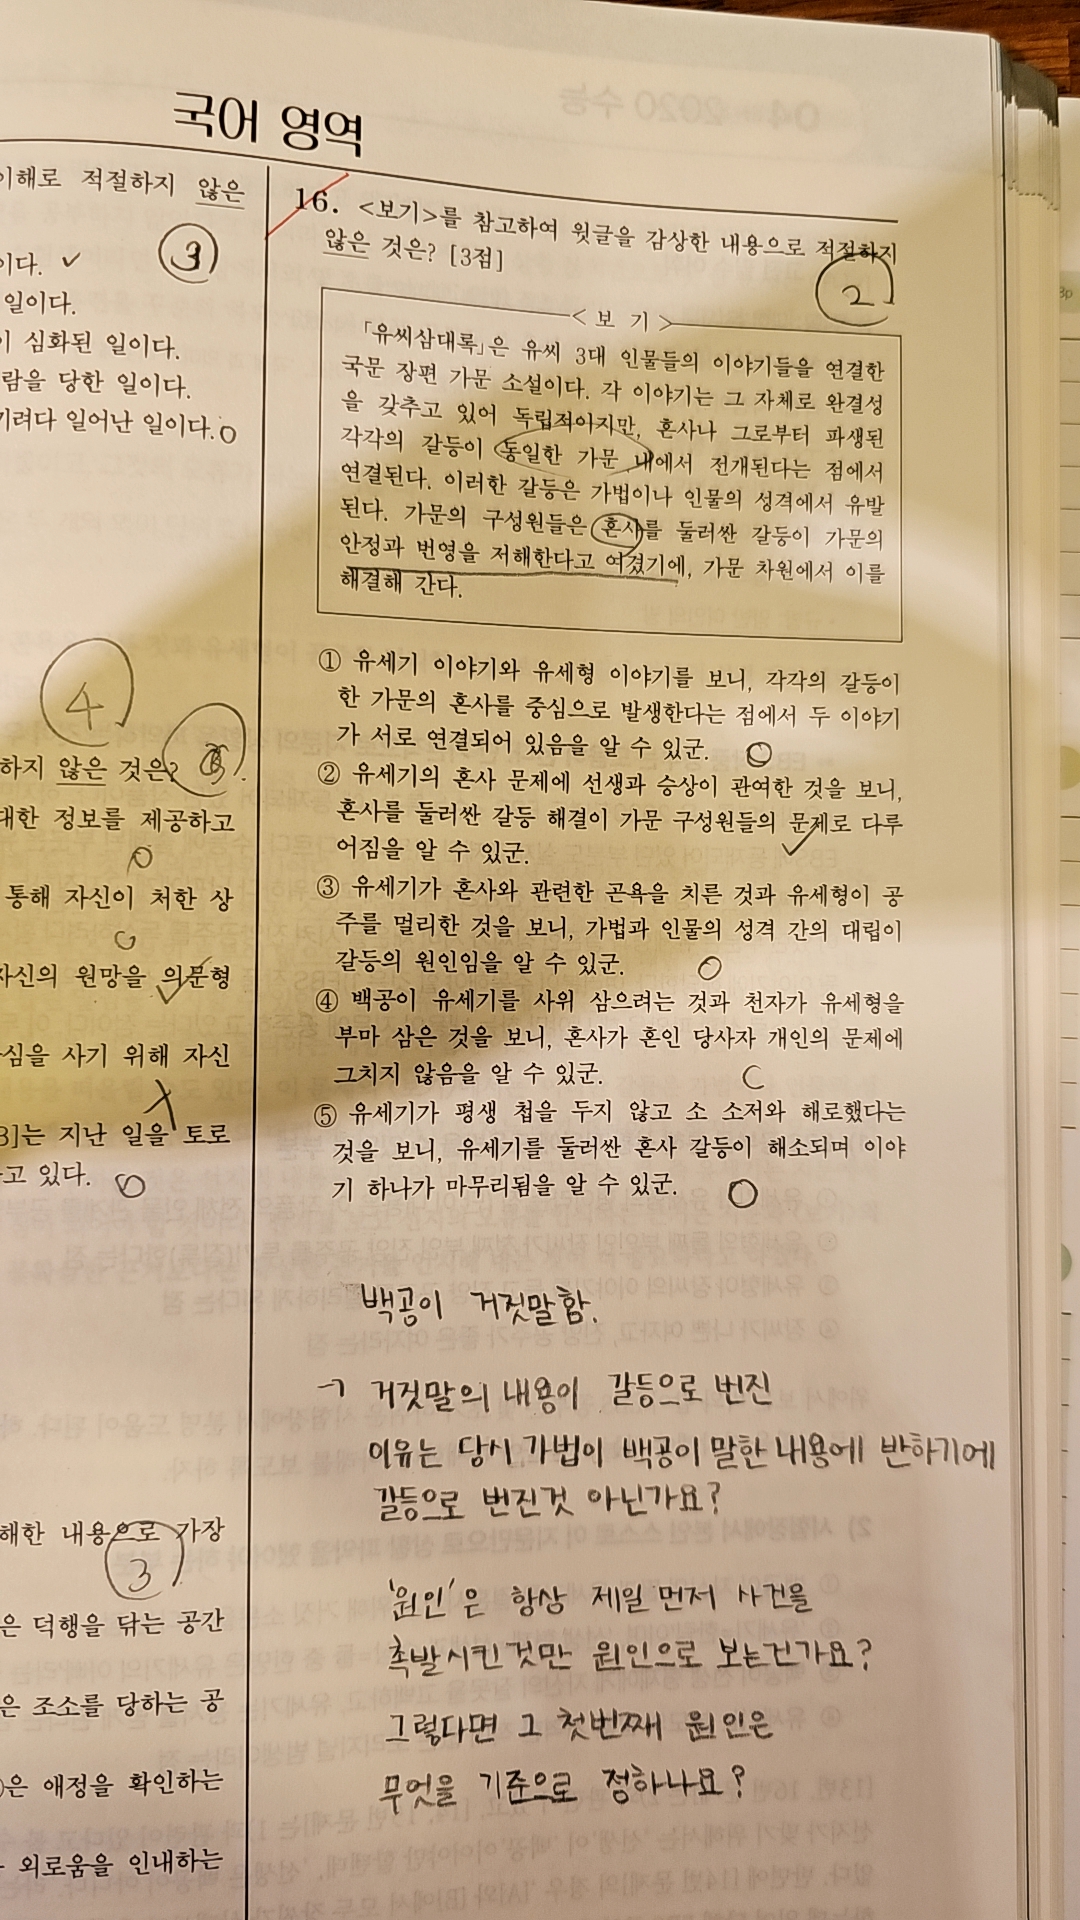 국어 영역
이해로 적절하지 않은
③
이다. ✓
일이다.
이 심화된 일이다.
람을 당한 일이다.
기려다 일어난 일이다. O
④
하지 않은 것은?
대한 정보를 제공하고
통해 자신이 처한 상
자신의 원망을 의문형
심을 사기 위해 자신
는 지난 일을 토로
고 있다. O
해한 내용으로 가장
③
은 덕행을 닦는 공간
은 조소를 당하는 공
은 애정을 확인하는
외로움을 인내하는
16. <보기>를 참고하여 윗글을 감상한 내용으로 적절하지
않은 것은? [3점]
②
<보 기>
「유씨삼대록」은 유씨 3대 인물들의 이야기들을 연결한
국문 장편 가문 소설이다. 각 이야기는 그 자체로 완결성
을 갖추고 있어 독립적이지만, 혼사나 그로부터 파생된
각각의 갈등이 동일한 가문 내에서 전개된다는 점에서
연결된다. 이러한 갈등은 가법이나 인물의 성격에서 유발
된다. 가문의 구성원들은 혼사를 둘러싼 갈등이 가문의
안정과 번영을 저해한다고 여겼기에, 가문 차원에서 이를
해결해 간다.
① 유세기 이야기와 유세형 이야기를 보니, 각각의 갈등이
한 가문의 혼사를 중심으로 발생한다는 점에서 두 이야기
가 서로 연결되어 있음을 알 수 있군. O
② 유세기의 혼사 문제에 선생과 승상이 관여한 것을 보니,
혼사를 둘러싼 갈등 해결이 가문 구성원들의 문제로 다루
어짐을 알 수 있군. ✓
③ 유세기가 혼사와 관련한 곤욕을 치른 것과 유세형이 공
주를 멀리한 것을 보니, 가법과 인물의 성격 간의 대립이
갈등의 원인임을 알 수 있군. O
④ 백공이 유세기를 사위 삼으려는 것과 천자가 유세형을
부마 삼은 것을 보니, 혼사가 혼인 당사자 개인의 문제에
그치지 않음을 알 수 있군. O
⑤ 유세기가 평생 첩을 두지 않고 소 소저와 해로했다는
것을 보니, 유세기를 둘러싼 혼사 갈등이 해소되며 이야
기 하나가 마무리됨을 알 수 있군. O
백공이 거짓말함.
→ 거짓말의 내용이 갈등으로 번진
이유는 당시 가법이 백공이 말한 내용에 반하기에
갈등으로 번진것 아닌가요?
'원인'은 항상 제일 먼저 사건을
촉발시킨 것만 원인으로 보는건가요?
그렇다면 그 첫번째 원인은
무엇을 기준으로 정하나요?